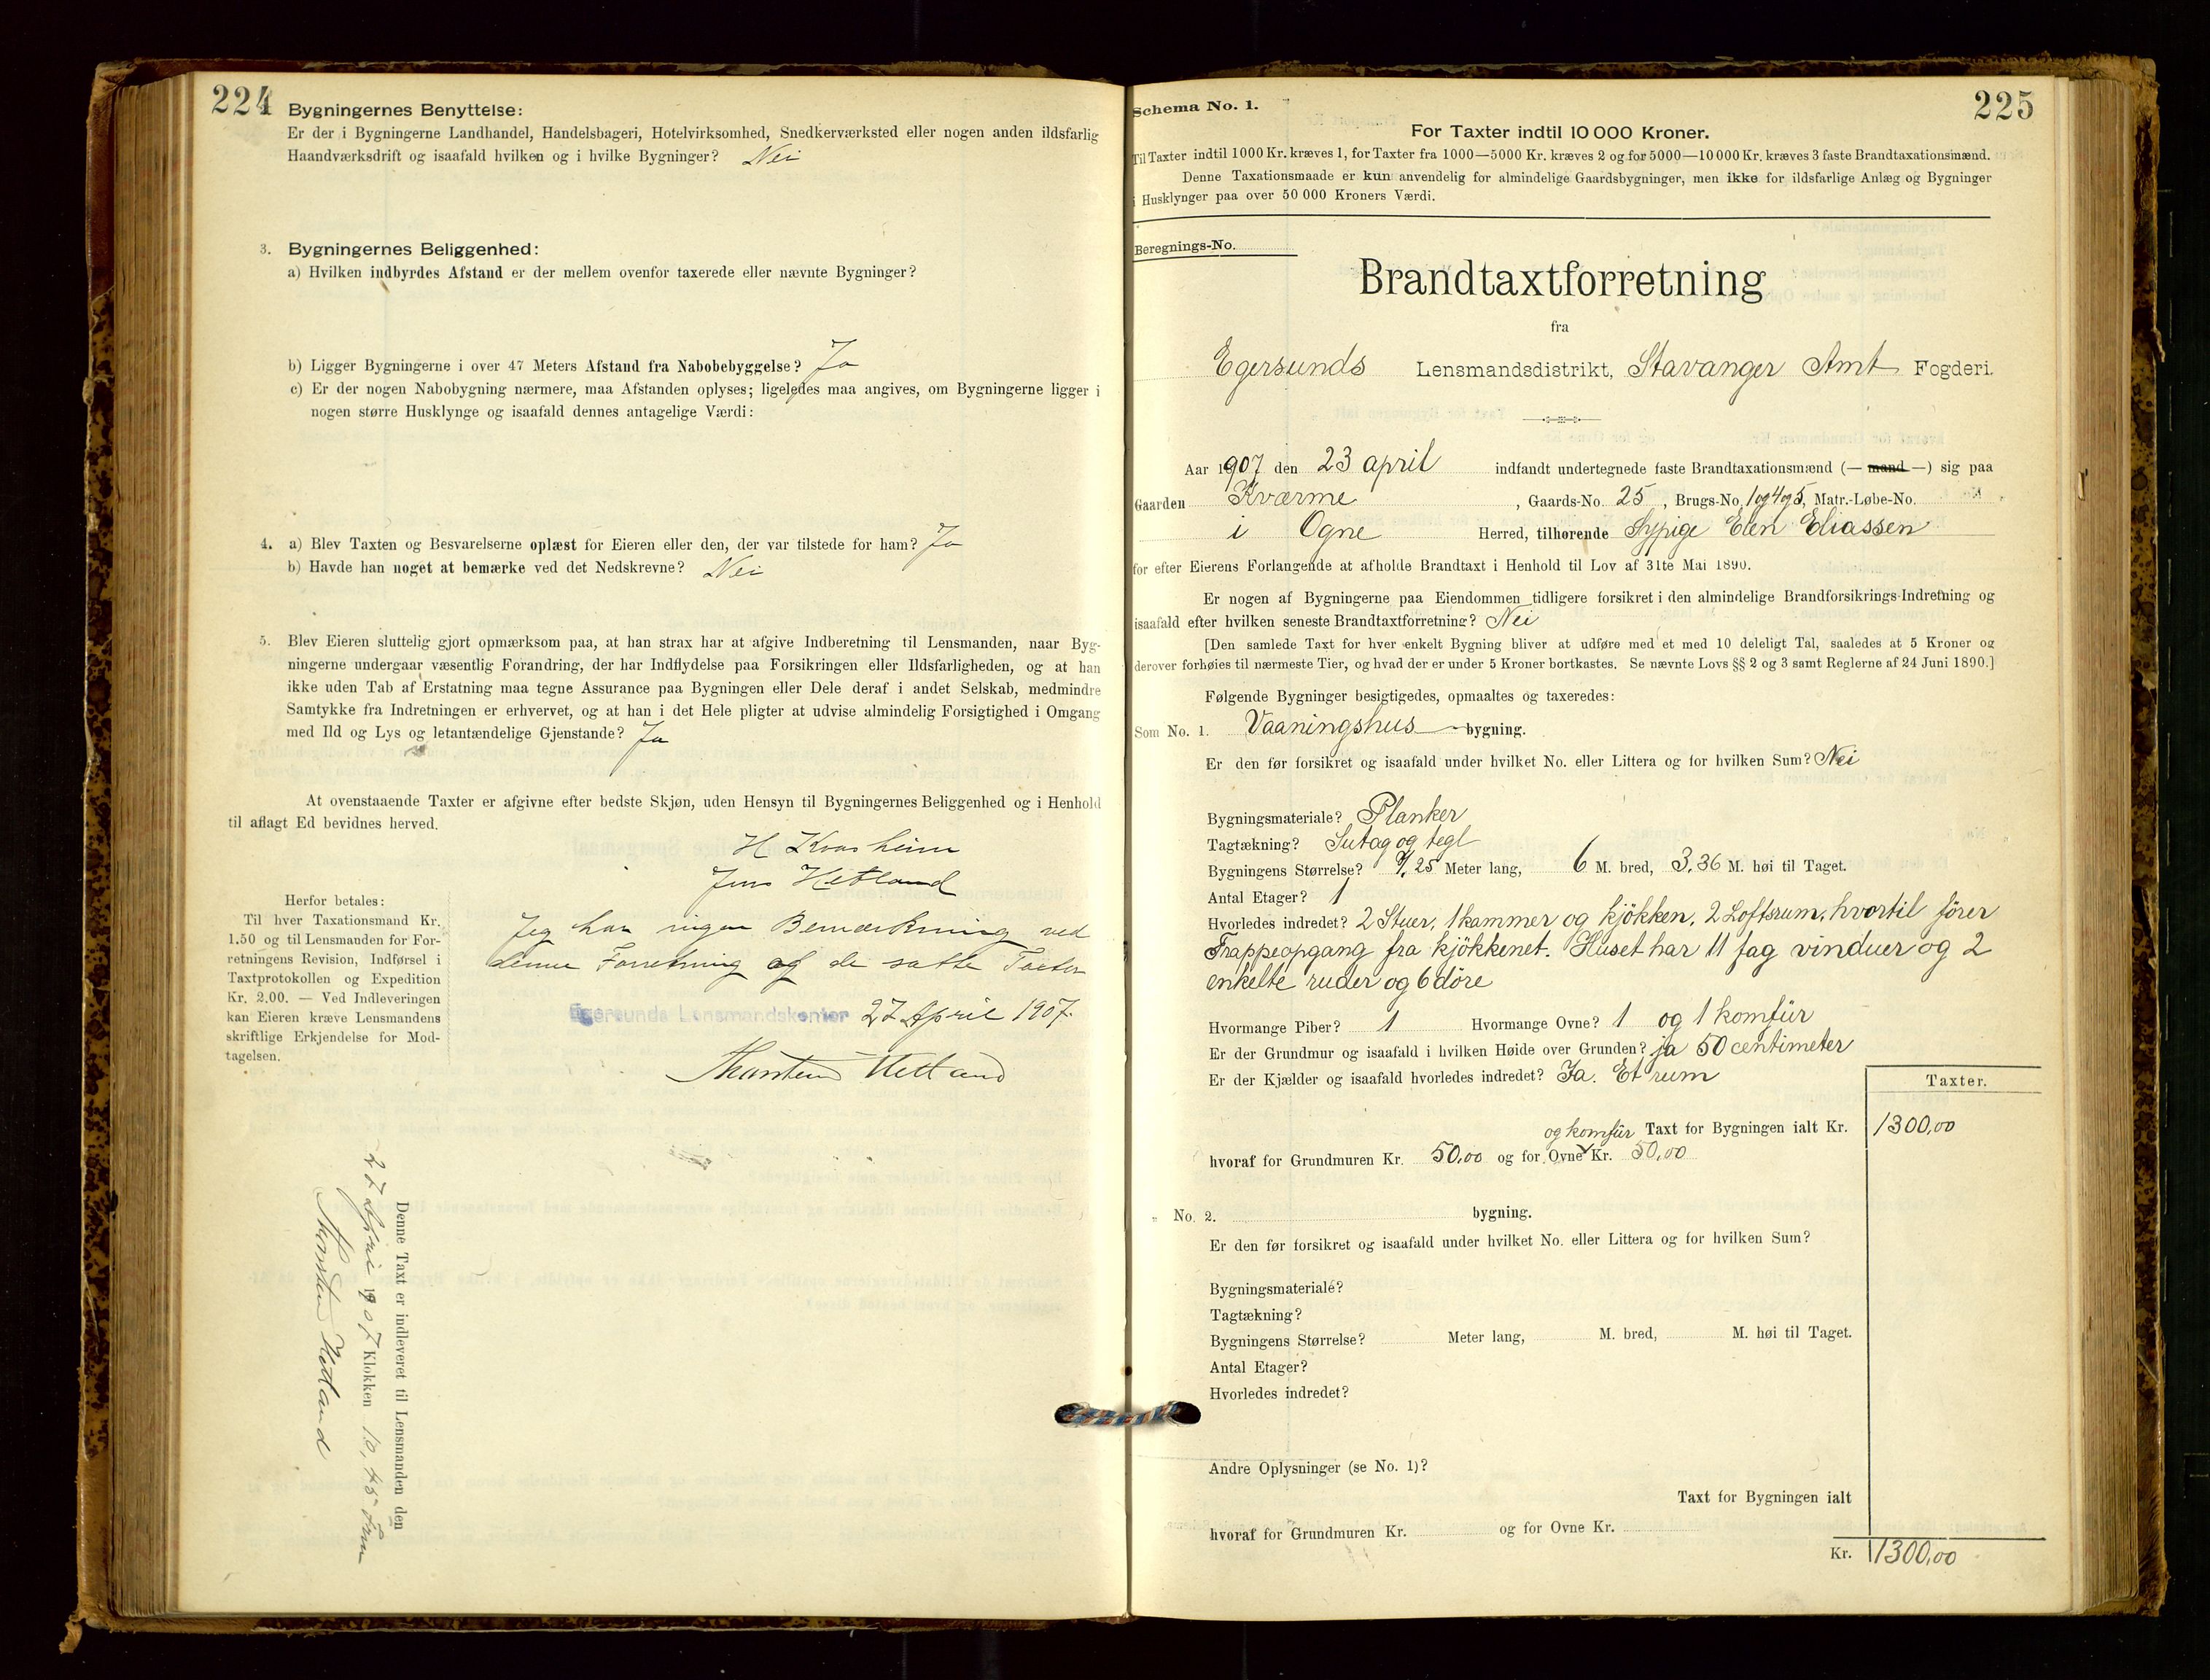 224
Bygningernes Benyttelse:
Er der i Bygningerne Landhandel, Handelsbageri, Hotelvirksomhed, Snedkerværksted eller nogen anden ildsfarlig
Haandværksdrift og isaafald hvilken og i hvilke Bygninger? Nei
3. Bygningernes Beliggenhed:
a) Hvilken indbyrdes Afstand er der mellem ovenfor taxerede eller nævnte Bygninger?
b) Ligger Bygningerne i over 47 Meters Afstand fra Nabobebyggelse? Ja
c) Er der nogen Nabobygning nærmere, maa Afstanden oplyses; ligeledes maa angives, om Bygningerne ligger i
nogen større Husklynge og isaafald dennes antagelige Værdi:
4. a) Blev Taxten og Besvarelserne oplæst for Eieren eller den, der var tilstede for ham? Ja
b) Havde han noget at bemærke ved det Nedskrevne? Nei
5. Blev Eieren sluttelig gjort opmærksom paa, at han strax har at afgive Indberetning til Lensmanden, naar Byg-
ningerne undergaar væsentlig Forandring, der har Indflydelse paa Forsikringen eller Ildsfarligheden, og at han
ikke uden Tab af Erstatning maa tegne Assurance paa Bygningen eller Dele deraf i andet Selskab, medmindre
Samtykke fra Indretningen er erhvervet, og at han i det Hele pligter at udvise almindelig Forsigtighed i Omgang
med Ild og Lys og letantændelige Gjenstande? Ja
At ovenstaaende Taxter er afgivne efter bedste Skjøn, uden Hensyn til Bygningernes Beliggenhed og i Henhold
til aflagt Ed bevidnes herved.
H Kvasheim
Jens Hetland
Jeg har ingen Bemærkning ved
denne Forretning og de satte Taxter
Egersunds Lensmandskontor 27 April 1907.
Thorsten Hetland
Herfor betales:
Til hver Taxationsmand Kr.
1.50 og til Lensmanden for For-
retningens Revision, Indførsel i
Taxtprotokollen og Expedition
Kr. 2.00. — Ved Indleveringen
kan Eieren kræve Lensmandens
skriftlige Erkjendelse for Mod-
tagelsen.
Denne Taxt er indleveret til Lensmanden den
27 April 1907 Klokken 10,45 Fm
Thorsten Hetland
Schema No. 1.
225
For Taxter indtil 10 000 Kroner.
Til Taxter indtil 1000 Kr. kræves 1, for Taxter fra 1000—5000 Kr. kræves 2 og for 5000—10 000 Kr. kræves 3 faste Brandtaxationsmænd.
Denne Taxationsmaade er kun anvendelig for almindelige Gaardsbygninger, men ikke for ildsfarlige Anlæg og Bygninger
i Husklynger paa over 50 000 Kroners Værdi.
Beregnings-No.
Brandtaxtforretning
fra
Egersunds Lensmandsdistrikt, Stavanger Amt Fogderi.
Aar 1907 den 23 april indfandt undertegnede faste Brandtaxationsmænd (— mand —) sig paa
Gaarden Kværme, Gaards-No. 25, Brugs-No. 1 og 4 og 5, Matr.-Løbe-No.
i Ogne Herred, tilhørende Sypige Elen Eliassen
for efter Eierens Forlangende at afholde Brandtaxt i Henhold til Lov af 31te Mai 1890.
Er nogen af Bygningerne paa Eiendommen tidligere forsikret i den almindelige Brandforsikrings-Indretning og
isaafald efter hvilken seneste Brandtaxtforretning? Nei
[Den samlede Taxt for hver enkelt Bygning bliver at udføre med et med 10 deleligt Tal, saaledes at 5 Kroner og
derover forhøies til nærmeste Tier, og hvad der er under 5 Kroner bortkastes. Se nævnte Lovs §§ 2 og 3 samt Reglerne af 24 Juni 1890.]
Følgende Bygninger besigtigedes, opmaaltes og taxeredes:
Som No. 1. Vaaningshus bygning.
Er den før forsikret og isaafald under hvilket No. eller Littera og for hvilken Sum? Nei
Bygningsmateriale? Planker
Tagtækning? Sutag og tegl
Bygningens Størrelse? 9,25 Meter lang, 6 M. bred, 3,36 M. høi til Taget.
Antal Etager? 1
Hvorledes indredet? 2 Stuer, 1 kammer og kjökken, 2 Loftsrum, hvortil fører
Trappeopgang fra kjökkenet. Huset har 11 fag vinduer og 2
enkelte ruder og 6 döre
Hvormange Piber? 1 Hvormange Ovne? 1 og 1 komfür
Er der Grundmur og isaafald i hvilken Høide over Grunden? ja 50 centimeter
Er der Kjælder og isaafald hvorledes indredet? Ja. Et rum
Taxter.
og komfür Taxt for Bygningen ialt Kr. 1300,00
hvoraf for Grundmuren Kr. 50,00 og for Ovne Kr. 50,00
„ No. 2. bygning.
Er den før forsikret og isaafald under hvilket No. eller Littera og for hvilken Sum?
Bygningsmateriale?
Tagtækning?
Bygningens Størrelse? Meter lang, M. bred, M. høi til Taget.
Antal Etager?
Hvorledes indredet?
Andre Oplysninger (se No. 1)?
Taxt for Bygningen ialt
hvoraf for Grundmuren Kr. og for Ovne Kr.
Kr. 1300,00